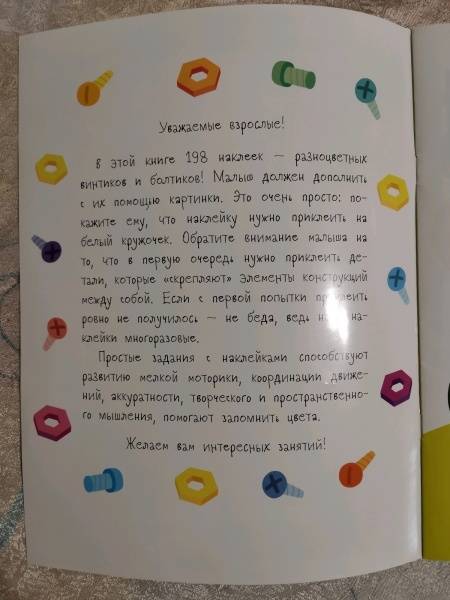 Уважаемые взрослые!
В этой книге 198 наклеек — разноцветных
винтиков и болтиков! Малыш должен дополнить
с их помощью картинки. Это очень просто: по-
кажите ему, что наклейку нужно приклеить на
белый кружочек. Обратите внимание малыша на
то, что в первую очередь нужно приклеить де-
тали, которые «скрепляют» элементы конструкций
между собой. Если с первой попытки приклеить
ровно не получилось — не беда, ведь на-
клейки многоразовые.
Простые задания с наклейками способствуют
развитию мелкой моторики, координации движе-
ний, аккуратности, творческого и пространственно-
го мышления, помогают запомнить цвета.
Желаем вам интересных занятий!